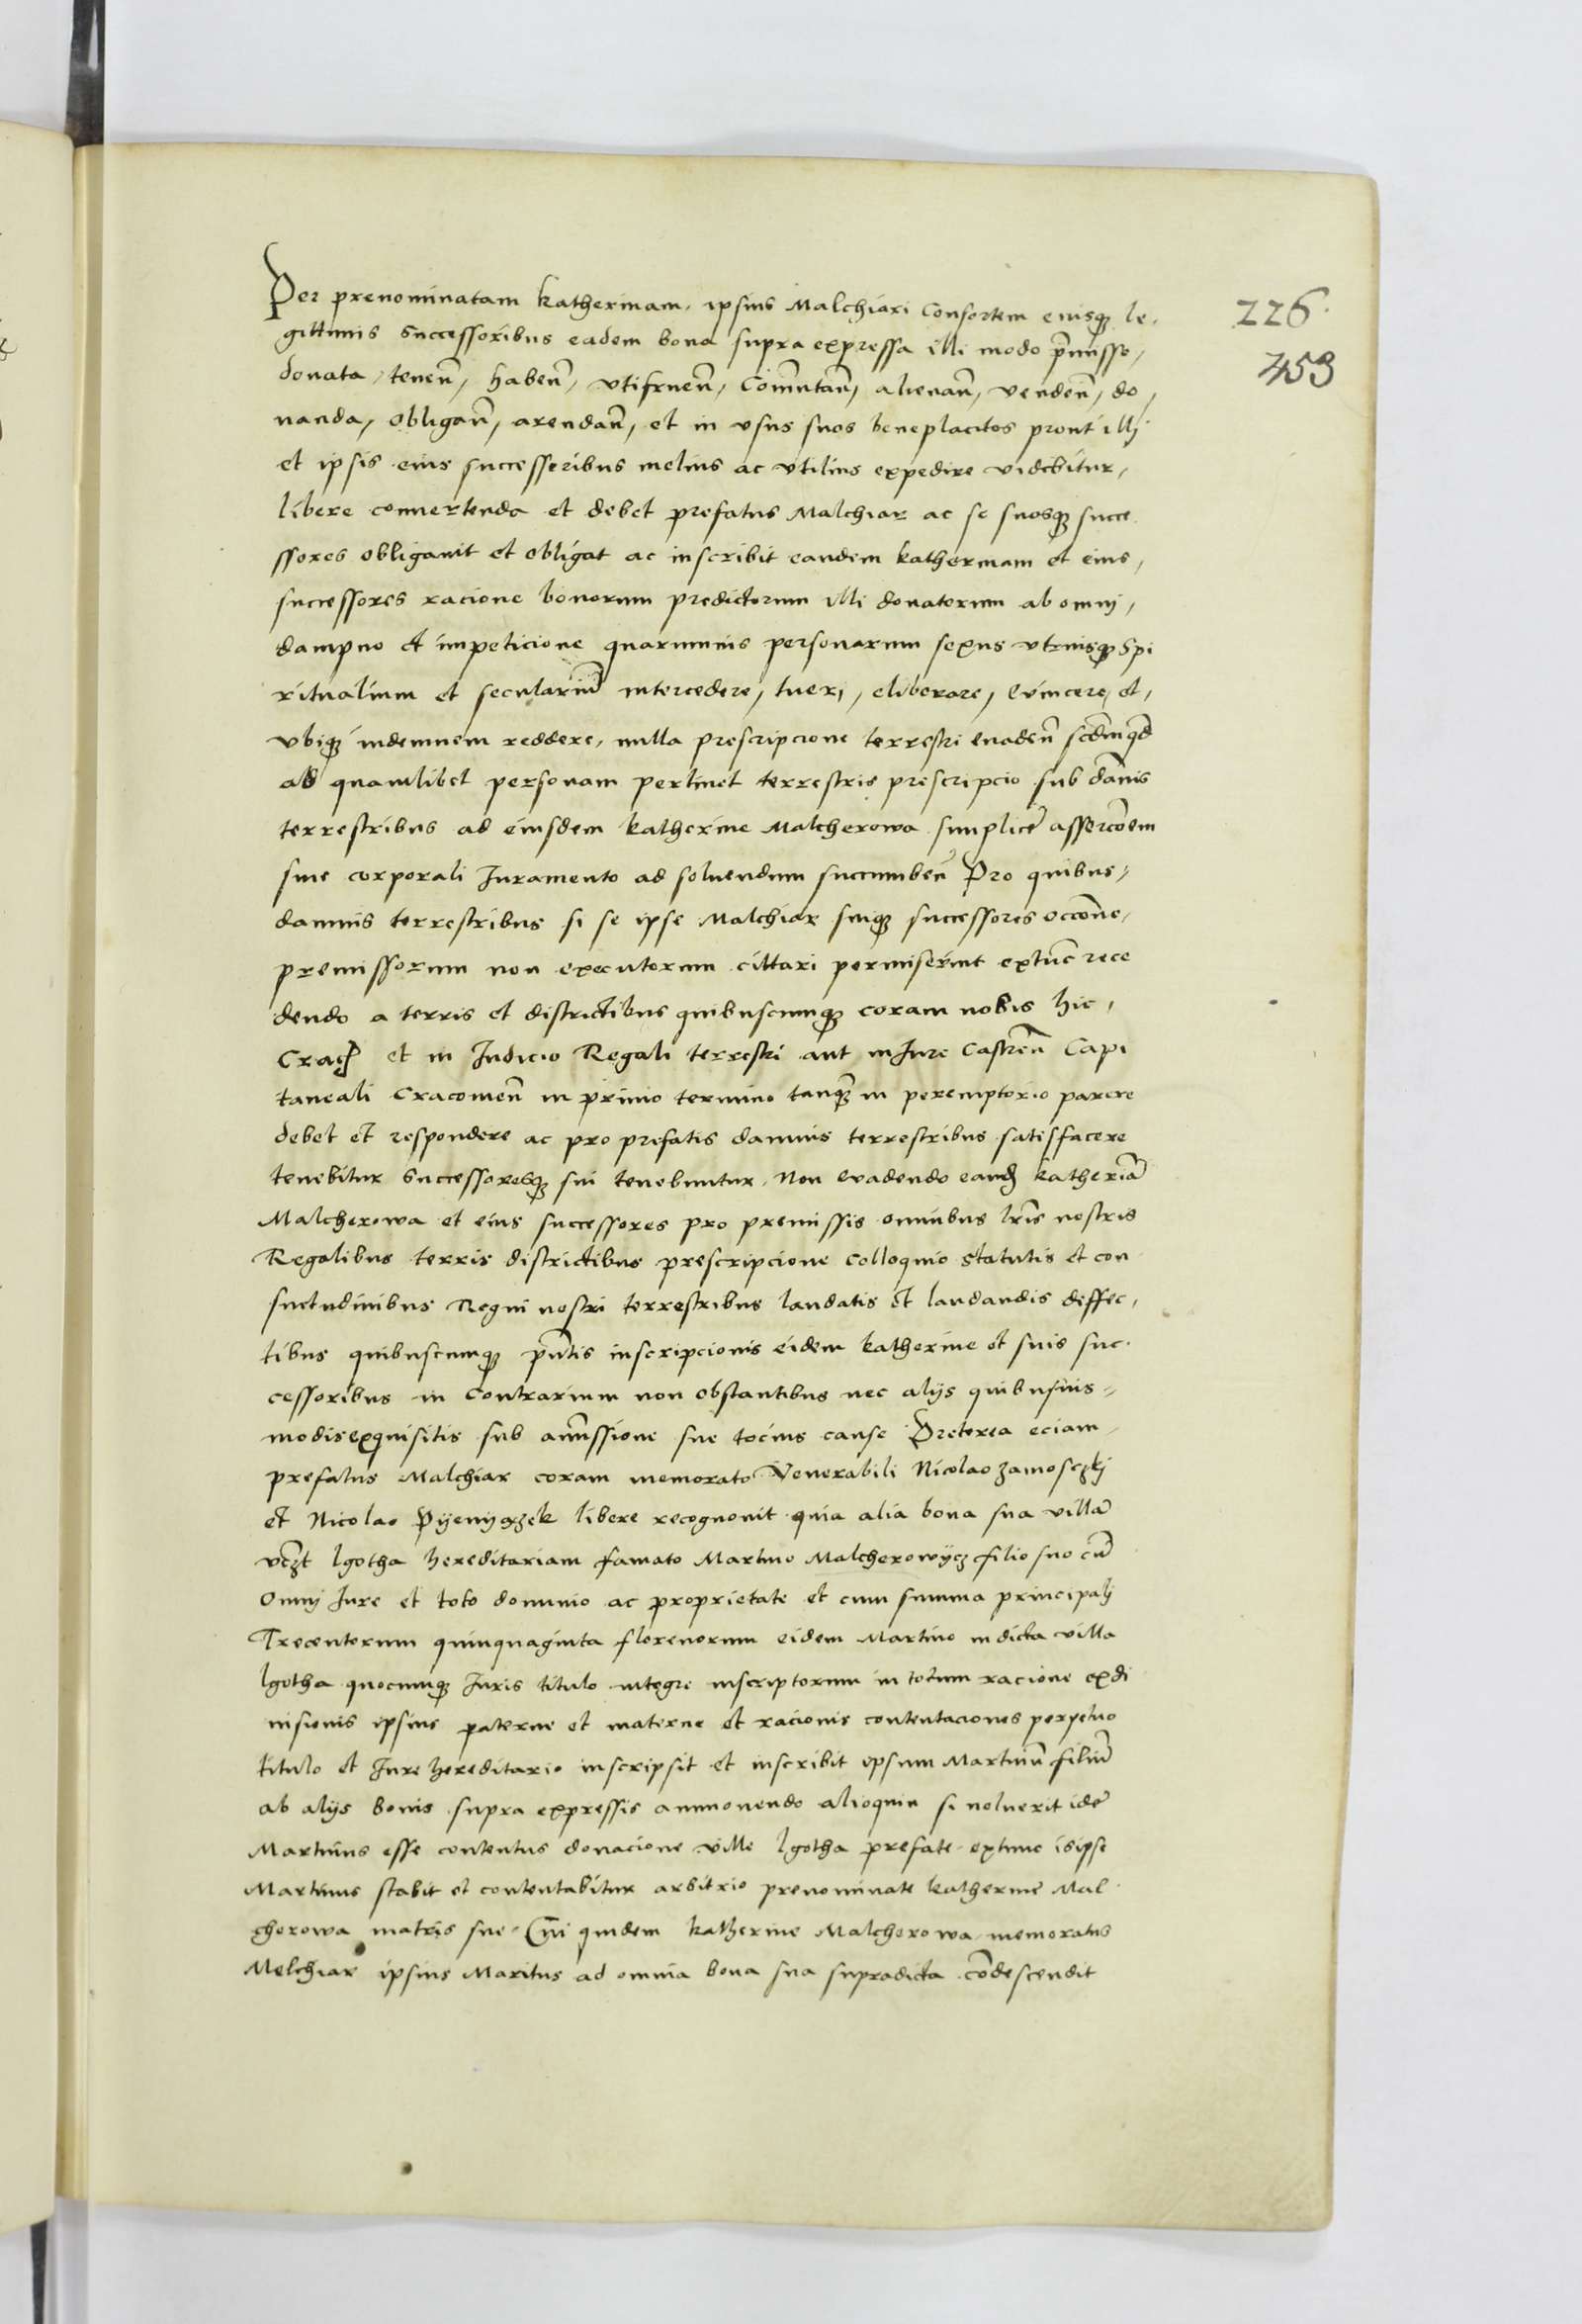 Per prenominatam katherinam ipsius Malchiari Consortem eiusq̃ le,
226
gittimis Successoribus eadem bona supra expressa illi modo p̃misso,
453
donata, tenen̄, haben̄, vtifruen̄, Com̄utan̄, alienan̄, venden̄, do,
nanda, obligan̄, arendan̄, et in vsus suos beneplacitos prout illj
et ipsis eius successoribus melius ac vtilius expedire videbitur,
libere conuertenda et debet prefatus Malchiar ac se suosq̃ succe
ssores obligauit et obligat ac inscribit eandem katherinam et eius,
successores racione bonorum predictorum illi donatorum ab omnj,
dampno et impeticione quarumuis personarum sexus vtriusq̃ Spi
ritualium et seculariũ intercedere, tueri, eliberare, Euincere, et,
vbiq̃ indemnem reddere, nulla prescripcione terrestri euaden̄ scdm̃q̃d
ad quamlibet personam pertinet terrestris prescripcio sub dam̃is
terrestribus ad eiusdem katherine Malcherowa simplicẽ assercõem
sine corporali Iuramento ad soluendum succumben̄ Pro quibus,
damnis terrestribus si se ipse Malchiar suiq̃ successores occõne,
premissorum non executorum cittari permiserint extũc rece
dendo a terris et districtibus quibuscumq̃ coram nobis hic,
Crac̃ et in Iudicio Regali terrestri aut in Iure Castren̄ Capi
taneali Cracouien̄ in primo termino tanq̃ in peremptorio parere
debet et respondere ac pro prefatis damnis terrestribus satisfacere
tenebitur Successoresq̃ sui tenebuntur. Non euadendo eand̃ katheriã
Malcherowa et eius successores pro premissis omnibus lr̃is nostris
Regalibus terris districtibus prescripcione Colloquio Statutis et con
suetudinibus Regni nostri terrestribus laudatis et laudandis deffec,
tibus quibuscumq̃ p̃ntis inscripcionis eidem katherine et suis suc
cessoribus in Contrarium non obstantibus nec alijs quibusuis
modis exquisitis sub am̃issione sue tocius cause Preterea eciam
prefatus Malchiar coram memorato Venerabili Nicolao zamosczkj
et Nicolao Pijenijązek libere recognouit quia alia bona sua villã
vc̃zt lgotha hereditariam famato Martino Malcherowÿcz filio suo cũ
Omnj Iure et toto dominio ac proprietate et cum summa principalj
Trecentorum quinquaginta florenorum eidem Martino in dicta villa
lgotha quocumq̃ Iuris titulo integre inscriptorum in totum racione exdi
uisionis ipsius paterne et materne et racionis contentaciones perpetuo
titulo et Iure hereditario inscripsit et inscribit ipsum Martinũ filiũ
ab alijs bonis supra expressis ammouendo alioquin si noluerit idẽ
Martinus esse contentus donacione ville lgotha prefate extunc is ipse
Martinus stabit et contentabitur arbitrio prenominate katherine Mal
cherowa matris sue. Cui quidem katherine Malcherowa memoratus
Melchiar ipsius Maritus ad omnia bona sua supradicta cõdescendit